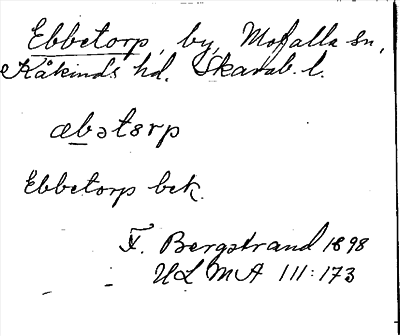 Ebbetorp, by, Mofalla sn,
Kåkinds hd. Skarab. l.
æbətɛrp
Ebbetorp bek.
F. Bergstrand 1898
ULMA 111:173